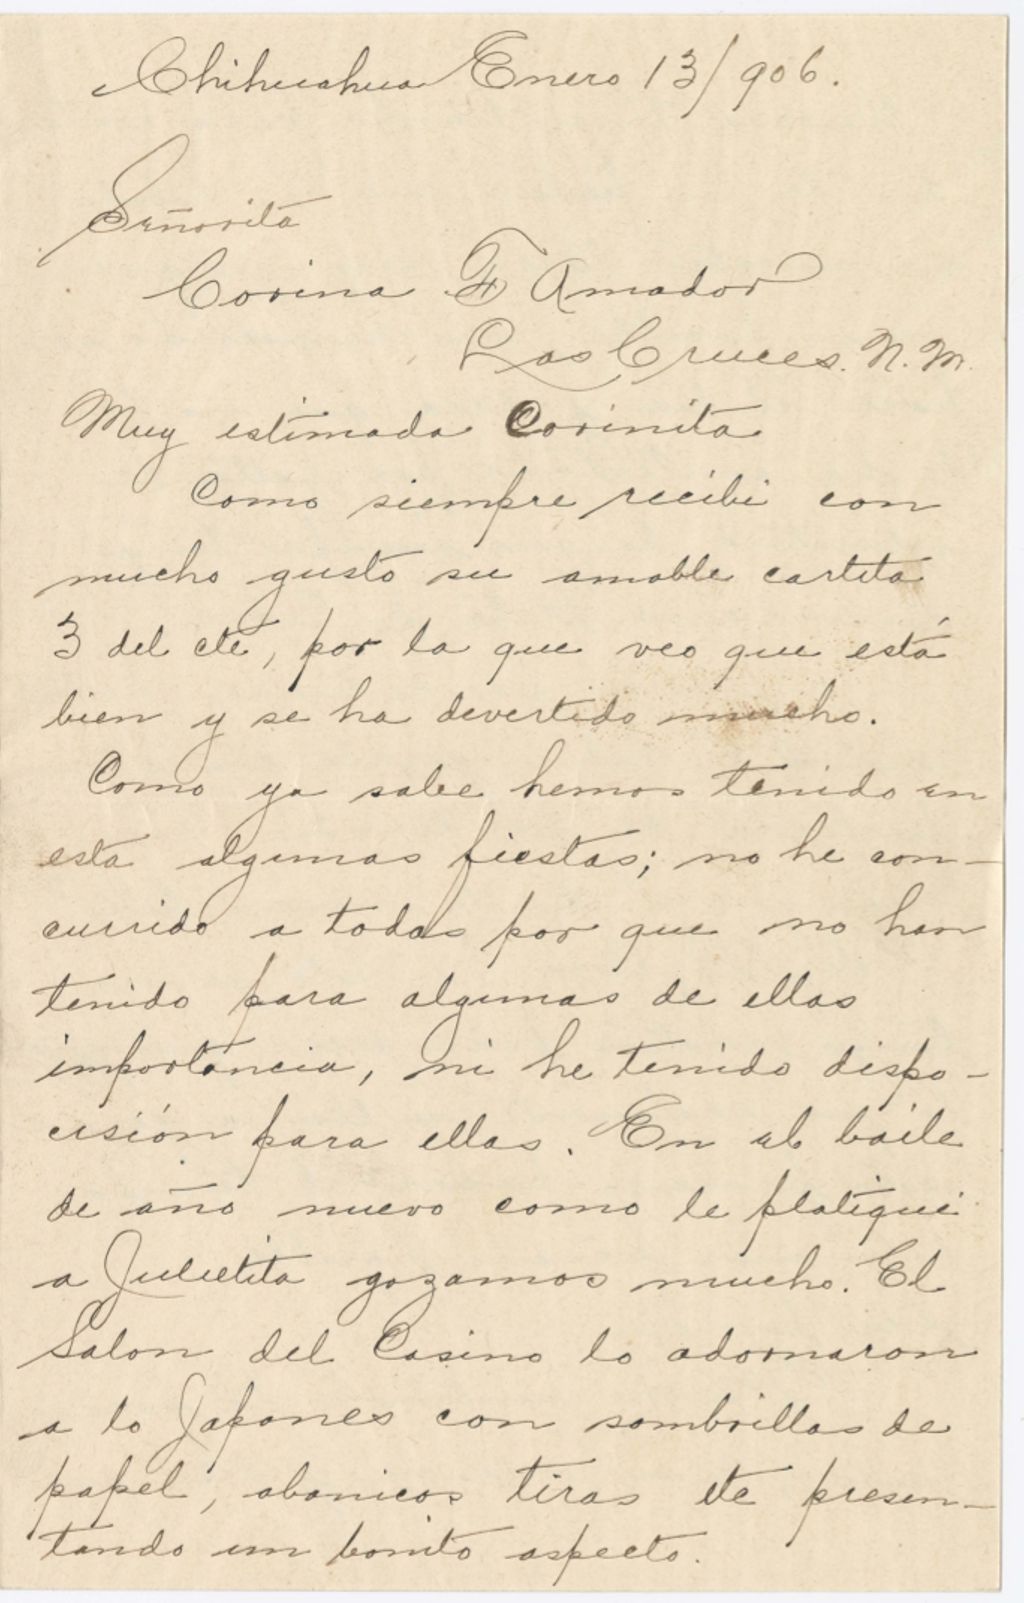 Chihuahua Enero 13/906.
Señorita
Corina F Amador
Las Cruces. N. M.
Muy estimada Corinita
Como siempre recibi con
mucho gusto su amable cartita
3 del cte, por la que veo que está
bien y se ha devertido mucho.
Como ya sabe hemos tenido en
esta algunas fiestas; no he con-
currido a todas por que no han
tenido para algunas de ellas
importancia, ni he tenido dispo-
cisión para ellas. En el baile
de año nuevo como le platiqué
a Julietita gozamos mucho. El
Salon del Casino lo adornaron
a lo Japones con sombrillas de
papel, abanicos tiras etc presen-
tando un bonito aspecto.